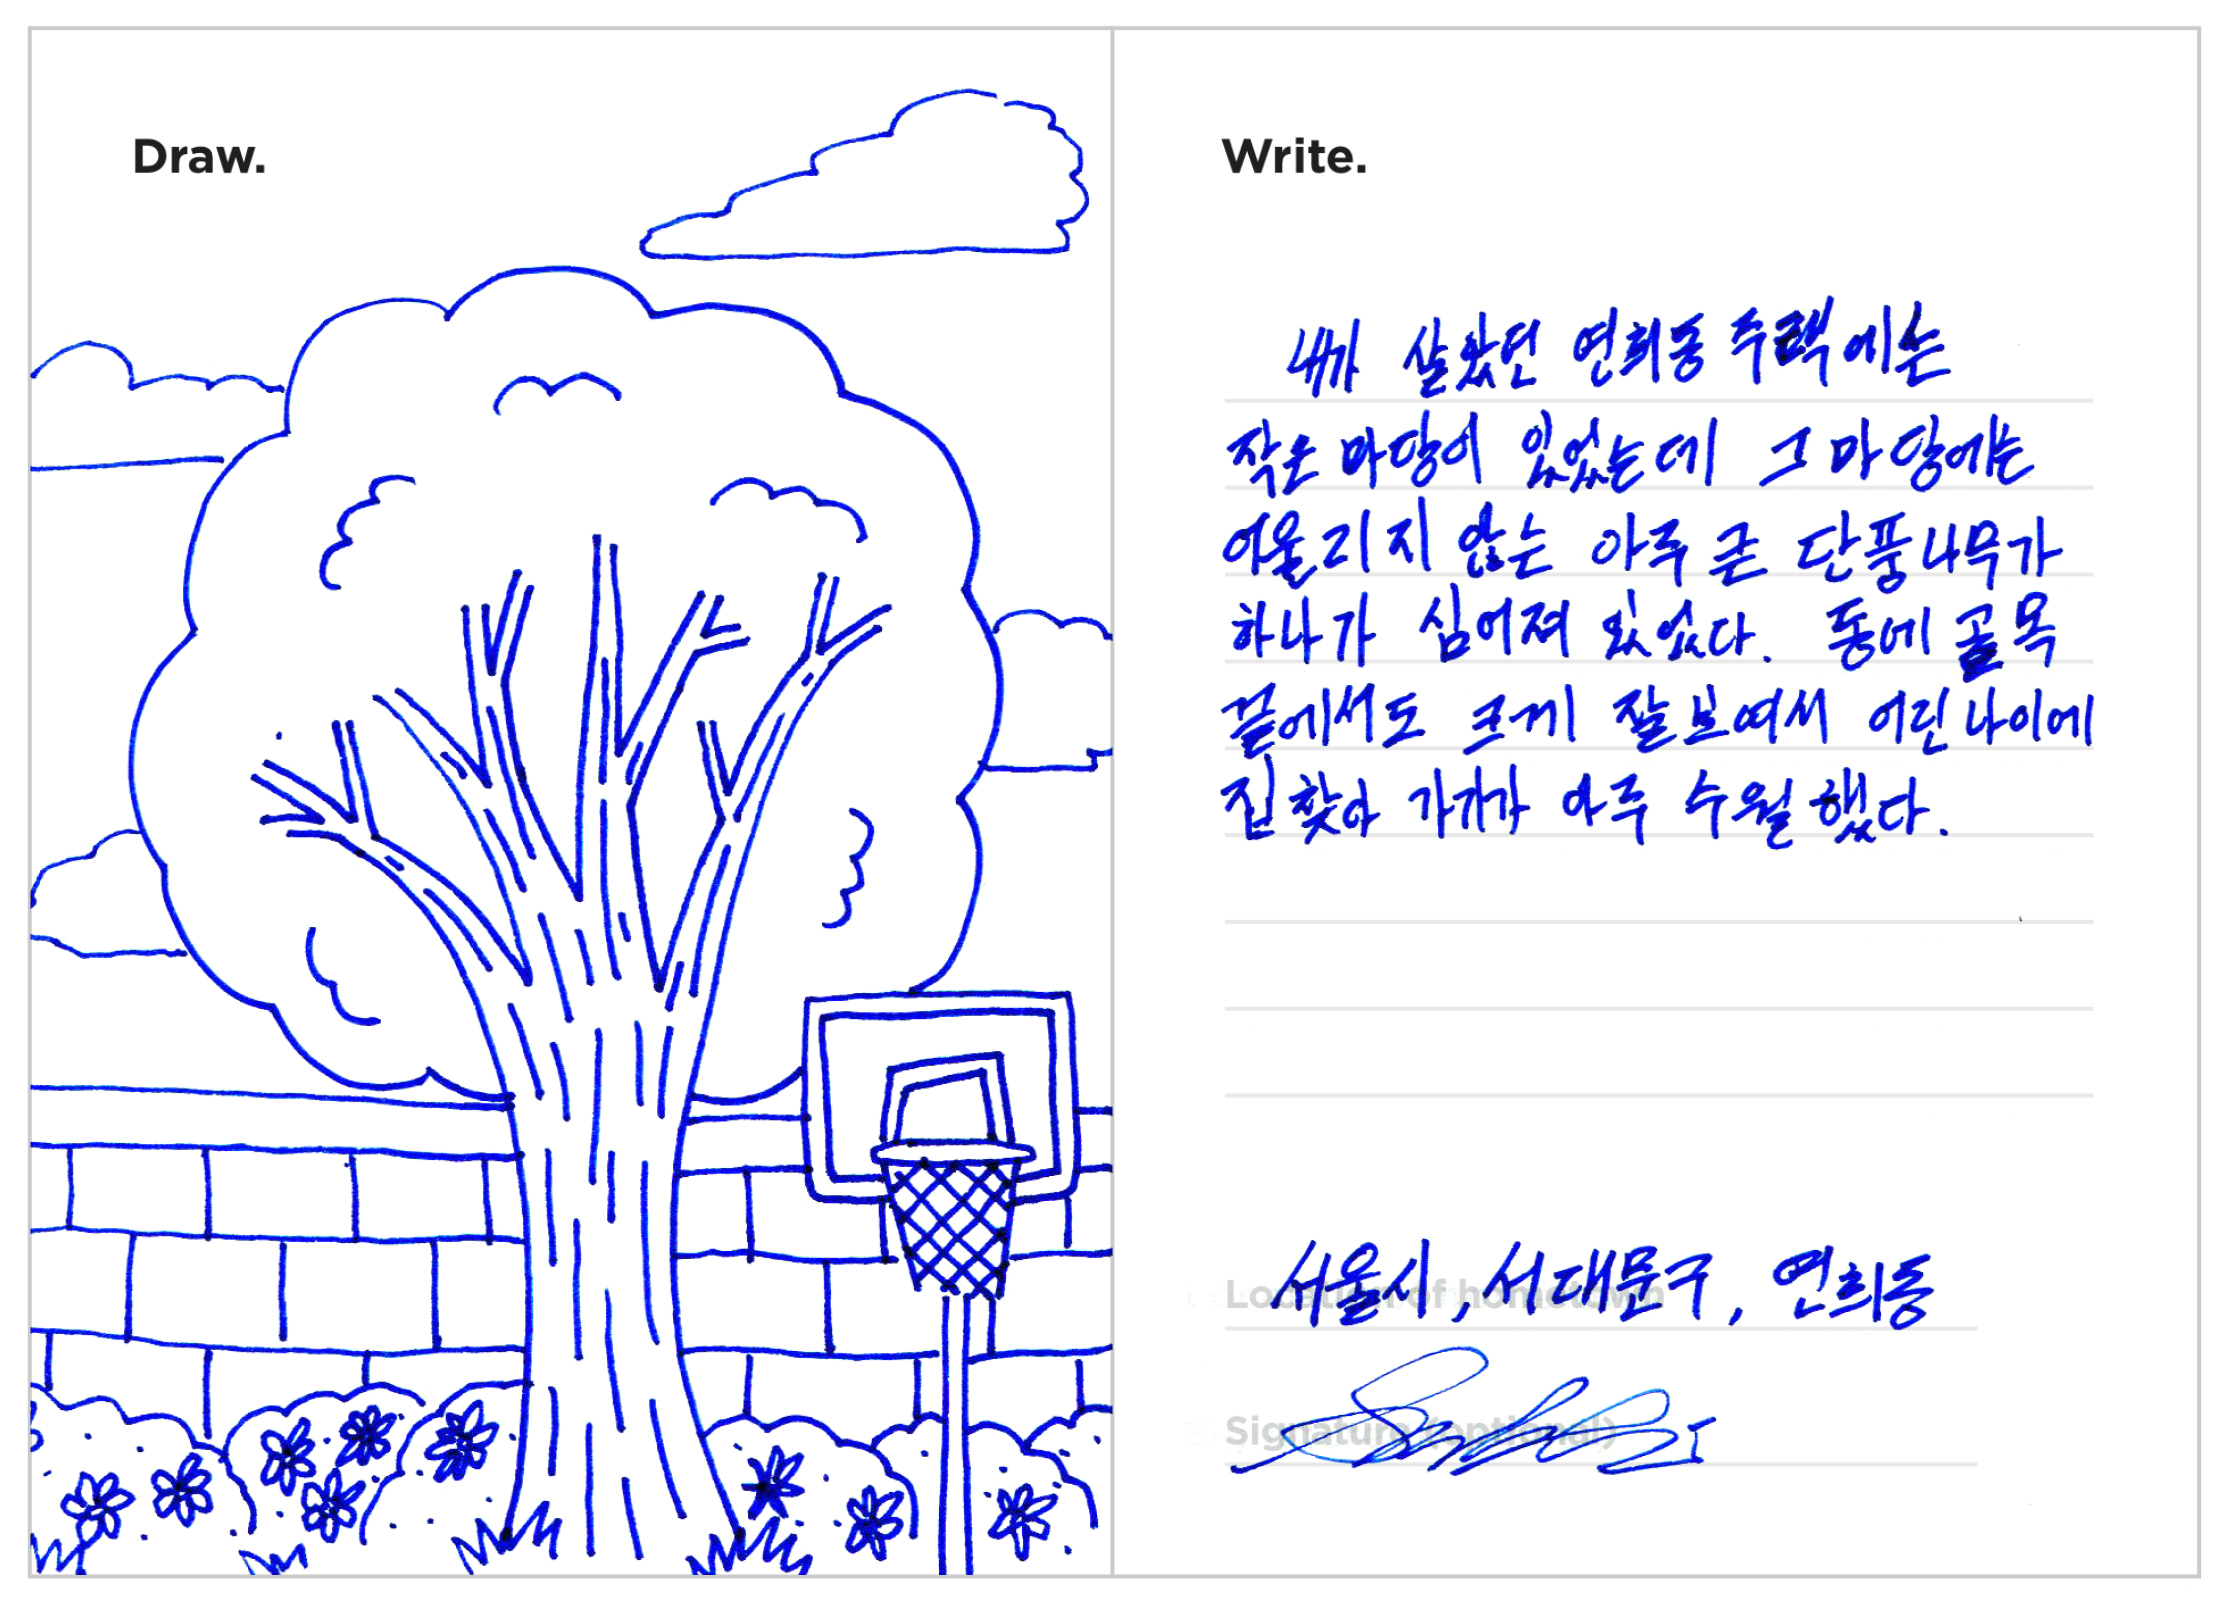 Draw.
Write.
내가 살았던 연희동 주택에는
작은 마당이 있었는데 그 마당에는
어울리지 않는 아주 큰 단풍나무가
하나가 심어져 있었다. 동네 골목
끝에서도 크게 잘 보여서 어린나이에
집찾아 가기가 아주 수월했다.
Location of hometown
서울시, 서대문구, 연희동
Signature (optional)